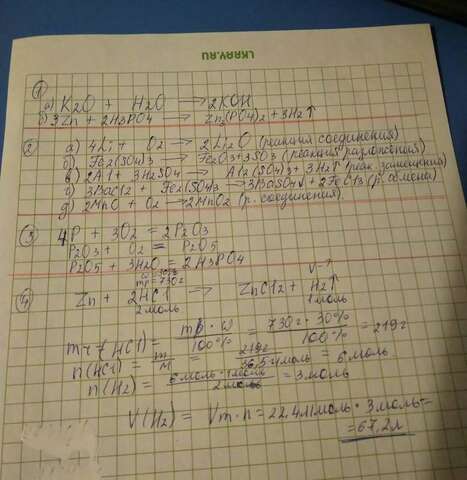 LKRAY.RU
1
а) K2O + H2O → 2KOH
б) 3Zn + 2H3PO4 → Zn3(PO4)2 + 3H2↑
2 а) 4Li + O2 → 2Li2O (реакция соединения)
б) Fe2(SO4)3 → Fe2O3+3SO3 (реакция разложения)
в) 2Al + 3H2SO4 → Al2(SO4)3 + 3H2↑ (реак. замещения)
г) 3BaCl2 + Fe2(SO4)3 → 3BaSO4↓ + 2FeCl3 (р. обмена)
д) 2MnO + O2 → 2MnO2 (р. соединения)
3 4P + 3O2 = 2P2O3
P2O3 + O2 = P2O5
P2O5 + 3H2O = 2H3PO4
ω=30%
mр=730г V-?
4 Zn + 2HCl → ZnCl2 + H2↑
2моль 1моль
mч-(HCl) = mр · ω / 100% = 730г · 30% / 100% = 219г
n(HCl) = m / M = 219г / 36,5г/моль = 6 моль
n(H2) = 6 моль · 1моль / 2моль = 3 моль
V(H2) = Vm · n = 22,4л/моль · 3 моль =
= 67,2л